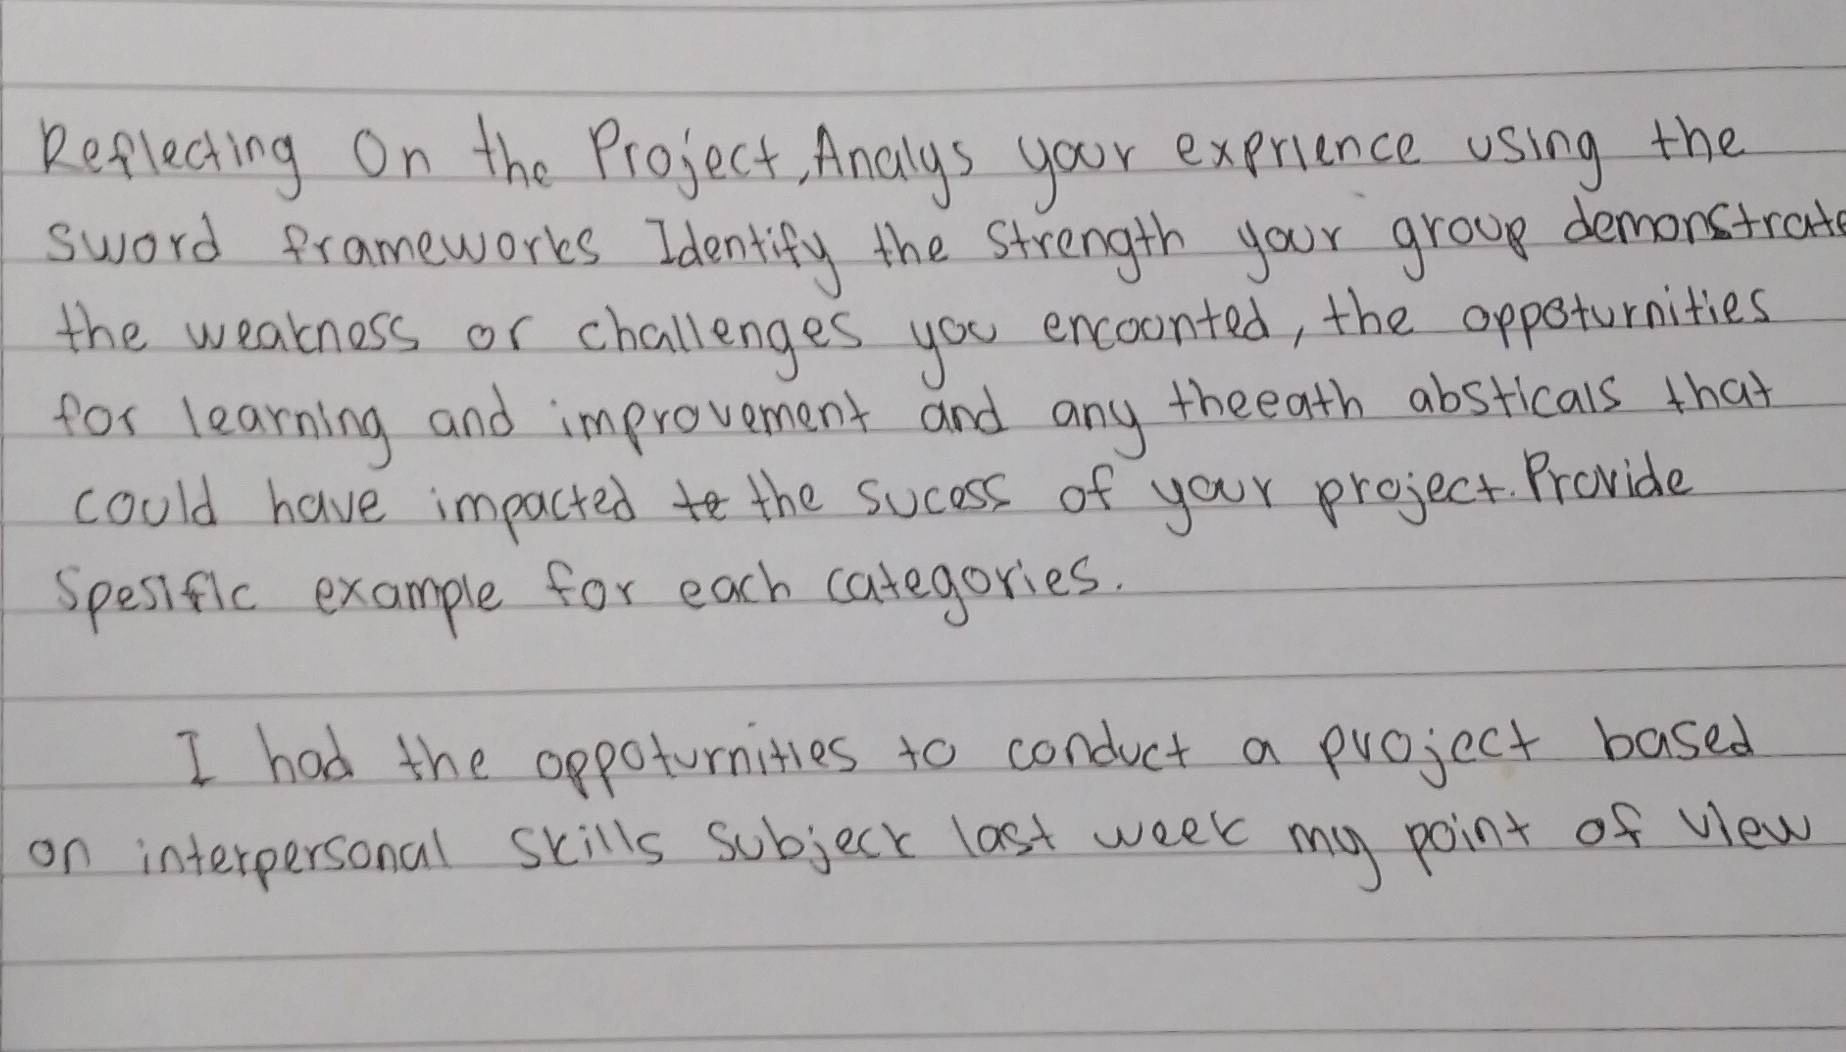 Reflecting On the Project, Analys your exprience using the
sword frameworks Identify the Strength your group demonstrate
the weakness or challenges you encounted, the oppoturnities
for learning and improvement and any theeath absticals that
could have impacted te the sucess of your project. Provide
Spesific example for each categories.
I had the oppoturnities to conduct a project based
on interpersonal skills Subject last week my point of view